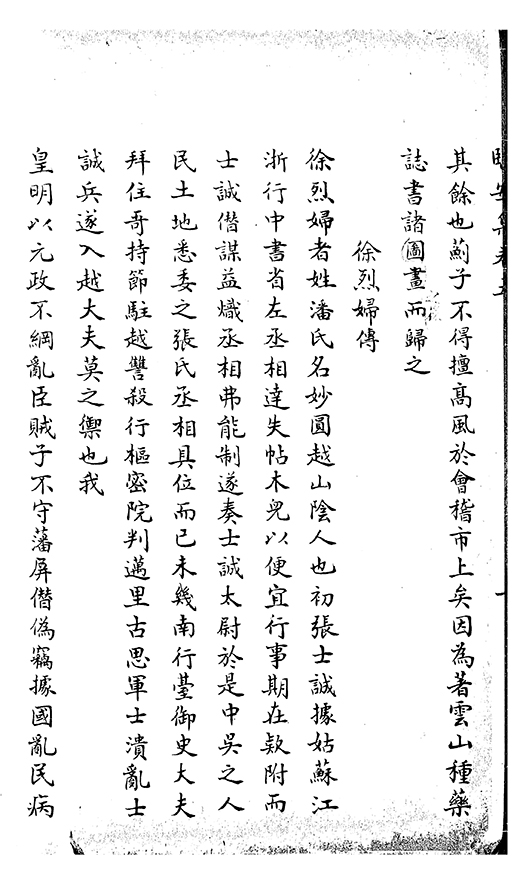 其餘也薊子不得擅髙風於會稽市上矣因為著雲山種藥
誌書諸圖畫而歸之
徐烈婦傳
徐烈婦者姓潘氏名妙圓越山陰人也初張士誠據姑蘇江
浙行中書省左丞相達失帖木兒以便宜行事期在欵附而
士誠僣謀益熾丞相弗能制遂奏士誠太尉於是中吳之人
民土地悉委之張氏丞相具位而已未幾南行臺御史大夫
拜住哥持節駐越讐殺行樞宻院判邁里古思軍士潰亂士
誠兵遂入越大夫莫之禦也我
皇明以元政不綱亂臣賊子不守藩屏僣偽竊據國亂民病